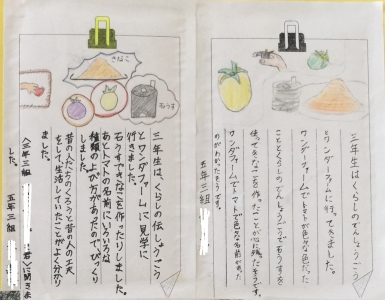 三年生は、くらしのでんしょうこう
とワンダーファームに行ってきました。
ワンダーファームでトマトが色々な色だった
こととくらしのでんしょうこうで石うすを
使ってきなこを作ったことが心に残ったそうです。
ワンダーファームでトマトで色々な名前があった
のがわかったそうです。
五年三組
きなこ
石うす
三年生は、くらしの伝しょうごう
とワンダファームに見学に
行きました。
石うすできなこを作ったりしました。
あとトマトの名前にいろいろな
種類のよび方があったのでびっくり
しました。
昔の人たちのくろうと昔の人の工夫
をして、生活していたことがよく分かり
ました。
三年三組
に聞きま
した。
五年三組